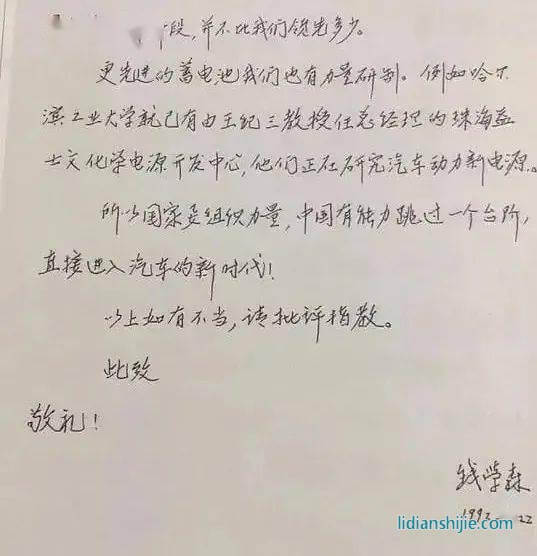 段，并不比我们领先多少。
更先进的蓄电池我们也有力量研制。例如哈尔
滨工业大学就已有由王纪三教授任总经理的珠海益
士文化学电源开发中心，他们正在研究汽车动力新电源。
所以国家要组织力量，中国有能力跳过一个台阶，
直接进入汽车的新时代！
以上如有不当，请批评指教。
此致
敬礼！
钱学森
1992 22
lidianshijie.com